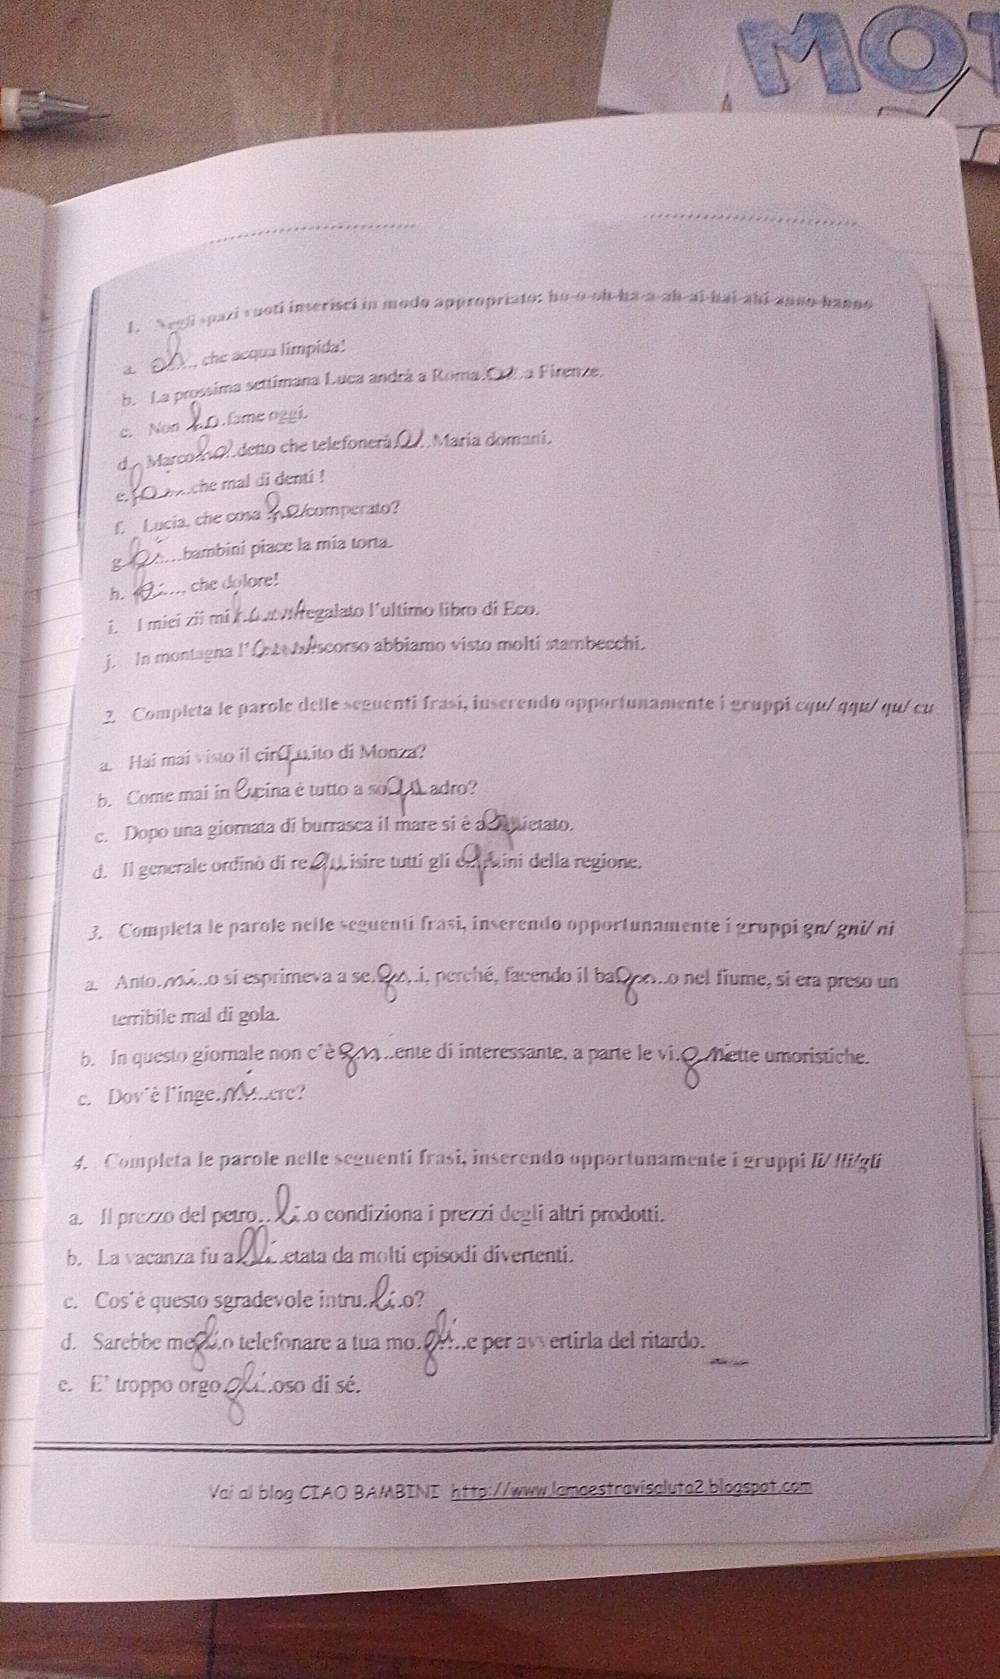 MOT
1. Negli spazi vuoti inserisci in modo appropriato: ho-o-oh-ha-a-ah-ai-hai-ahi-anno-hanno
a. oh..., che acqua limpida!
b. La prossima settimana Luca andrà a Roma o a Firenze.
c. Non ho fame oggi.
d. Marco ha detto che telefonerà a Maria domani.
e. che mal di denti !
f. Lucia, che cosa comperato?
g. bambini piace la mia torta.
h. , che dolore!
i. I miei zii mi hanno regalato l'ultimo libro di Eco.
j. In montagna l'anno scorso abbiamo visto molti stambecchi.
2. Completa le parole delle seguenti frasi, inserendo opportunamente i gruppi cqu/ qqu/ qu/ cu
a. Hai mai visto il circuito di Monza?
b. Come mai in cucina è tutto a soqquadro?
c. Dopo una giornata di burrasca il mare si è acquietato.
d. Il generale ordinò di requisire tutti gli equini della regione.
3. Completa le parole nelle seguenti frasi, inserendo opportunamente i gruppi gn/ gni/ ni
a. Anto.ni..o si esprimeva a se.gn.i, perché, facendo il ba.gn..o nel fiume, si era preso un
terribile mal di gola.
b. In questo giornale non c'è gn...ente di interessante, a parte le vi.gnette umoristiche.
c. Dov'è l'inge.....ere?
4. Completa le parole nelle seguenti frasi, inserendo opportunamente i gruppi li/ lli/gli
a. Il prezzo del petro..li.o condiziona i prezzi degli altri prodotti.
b. La vacanza fu a.lli..etata da molti episodi divertenti.
c. Cos'è questo sgradevole intru.gli.o?
d. Sarebbe meglio telefonare a tua mo.gli..e per avvertirla del ritardo.
e. E' troppo orgo.gli.oso di sé.
Vai al blog CIAO BAMBINI http://www.lamaestravisaluta2.blogspot.com